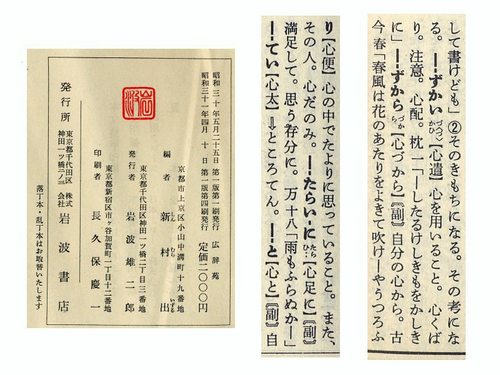 して書けども」②そのきもちになる。その考にな
る。—ずかい【心遣】心を用いること。心くば
り。注意。心配。枕一「—したるけしきもをかしき
に」—ずから【心づから】〘副〙自分の心から。古
今春「春風は花のあたりをよきて吹け—やうつろふ
り【心便】心の中でたよりに思っていること。また、
その人。心だのみ。—たらい・に【心足に】〘副〙
満足して。思う存分に。万十八「雨もふらぬか—」
—てい【心太】⇒ところてん。—と【心と】〘副〙自
昭和三十年五月二十五日 第一版第一刷発行
昭和三十一年四月十日 第一版第四刷発行
広辞苑
定価二〇〇〇円
京都市上京区小山中溝町十九番地
編者 新村出
東京都千代田区神田一ツ橋二丁目三番地
発行者 岩波雄二郎
東京都新宿区市ヶ谷加賀町一丁目十二番地
印刷者 長久保慶一
発行所
東京都千代田区
神田一ツ橋二ノ三
株式会社 岩波書店
落丁本・乱丁本はお取替いたします